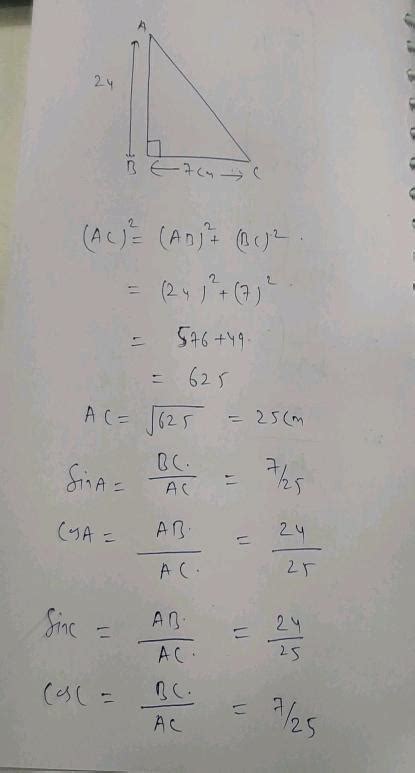 A
24
B ← 7cm → C
(AC)² = (AB)² + (BC)².
= (24)² + (7)²
= 576 + 49.
= 625
AC = √625 = 25cm
SinA = BC./AC = 7/25
CosA = AB./AC. = 24/25
Sinc = AB./AC. = 24/25
CosC = BC./AC = 7/25